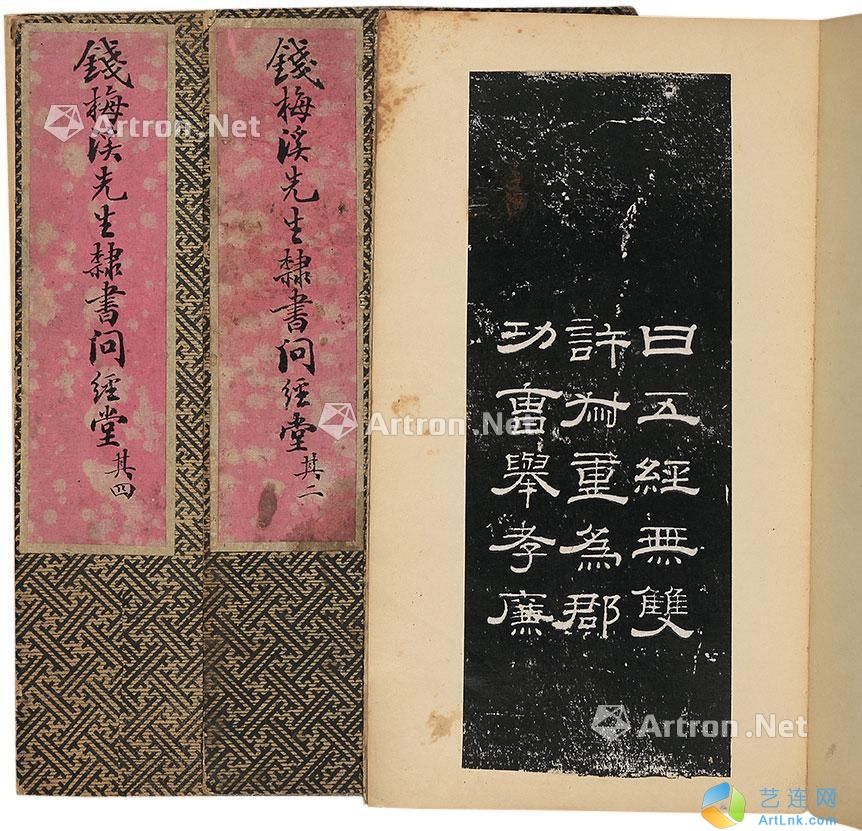 曰五經無雙
許叔重爲郡
功曹舉孝廉
錢梅溪先生隸書问經堂 其二
錢梅溪先生隸書问經堂 其四
Artron.Net
Artron.Net
Artron.Net
Artron.Net
艺连网
ArtLnk.com